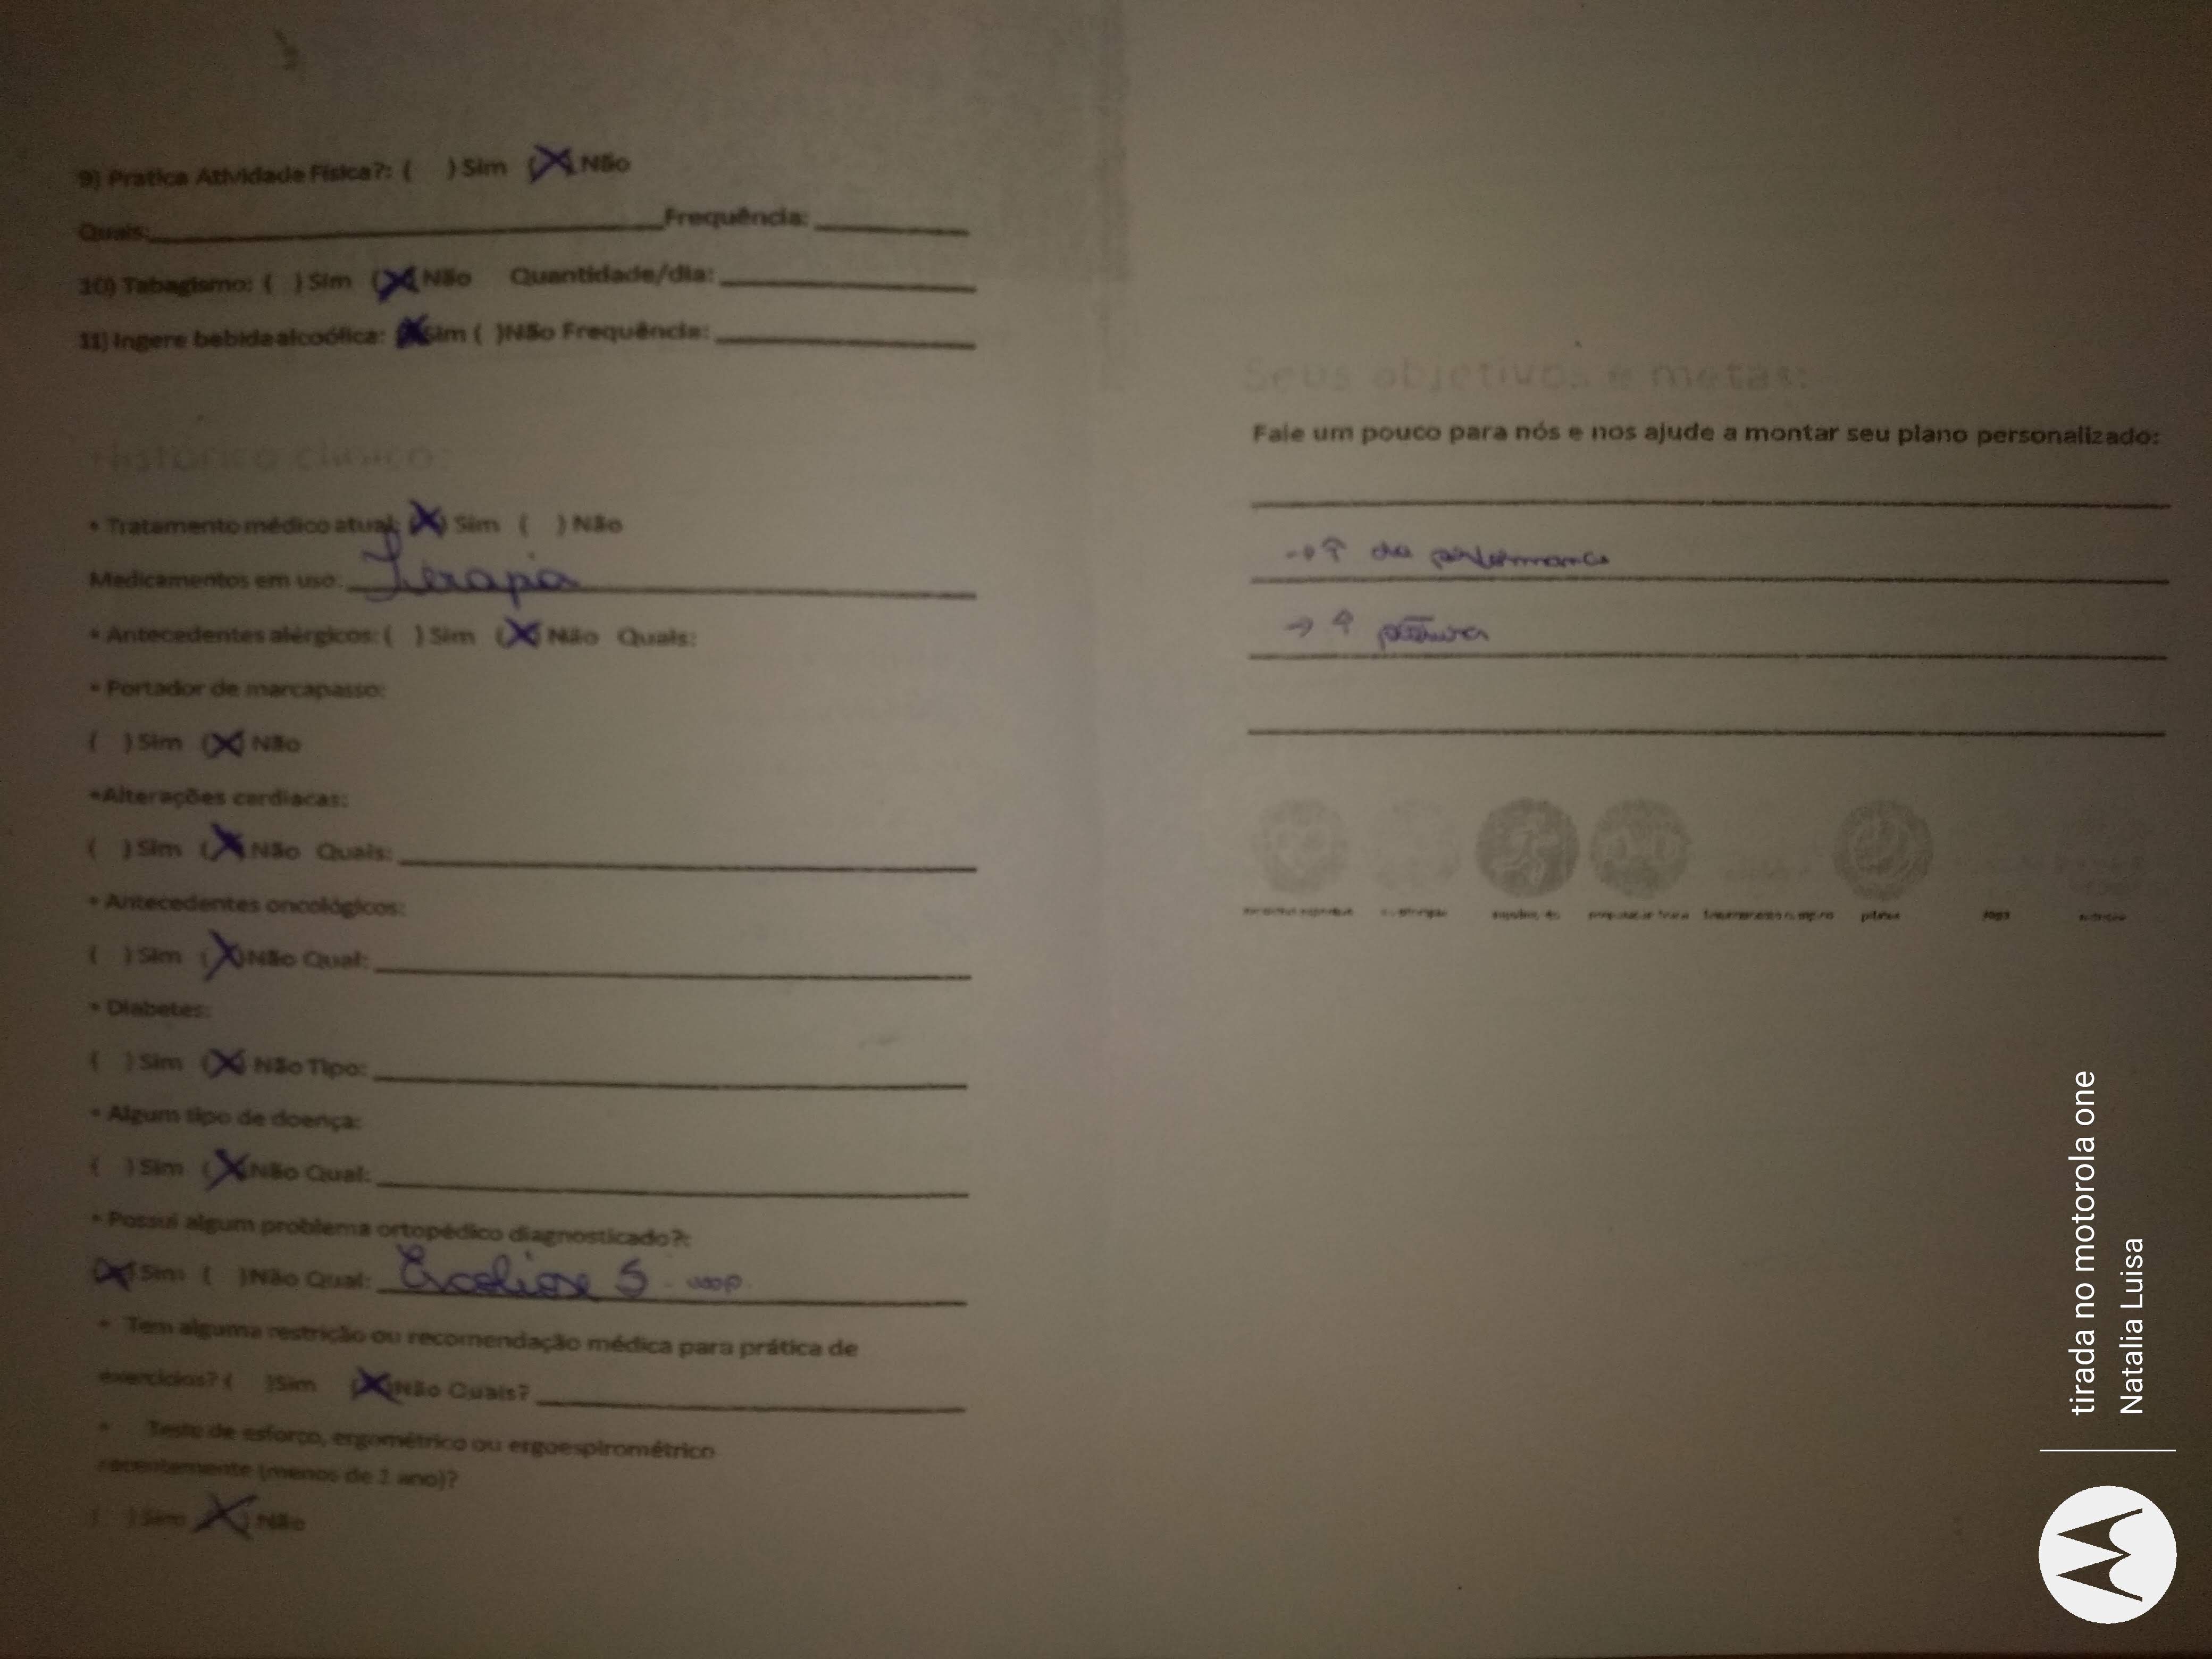 9) Pratica Atividade Física?: ( ) Sim (X) Não
Quais:____ Frequência:____
10) Tabagismo: ( ) Sim (X) Não Quantidade/dia:____
11) Ingere bebida alcoólica: (X) Sim ( )Não Frequência:____
Histórico clínico:
• Tratamento médico atual: (X) Sim ( ) Não
Medicamentos em uso: Terapia
• Antecedentes alérgicos: ( ) Sim (X) Não Quais:
• Portador de marcapasso:
( ) Sim (X) Não
•Alterações cardíacas:
( ) Sim (X) Não Quais:____
• Antecedentes oncológicos:
( ) Sim (X) Não Qual:____
• Diabetes:
( ) Sim (X) Não Tipo:____
• Algum tipo de doença:
( ) Sim (X) Não Qual:____
• Possui algum problema ortopédico diagnosticado?:
(X) Sim ( )Não Qual: Escoliose S
• Tem alguma restrição ou recomendação médica para prática de
exercícios? ( )Sim (X) Não Quais?____
• Teste de esforço, ergométrico ou ergoespirométrico
recentemente (menos de 1 ano)?
( ) Sim (X) Não
Seus objetivos e metas:
Fale um pouco para nós e nos ajude a montar seu plano personalizado:
→ ↑ da performance
→ ↑ postura
pilates
yoga
tirada no motorola one
Natalia Luisa